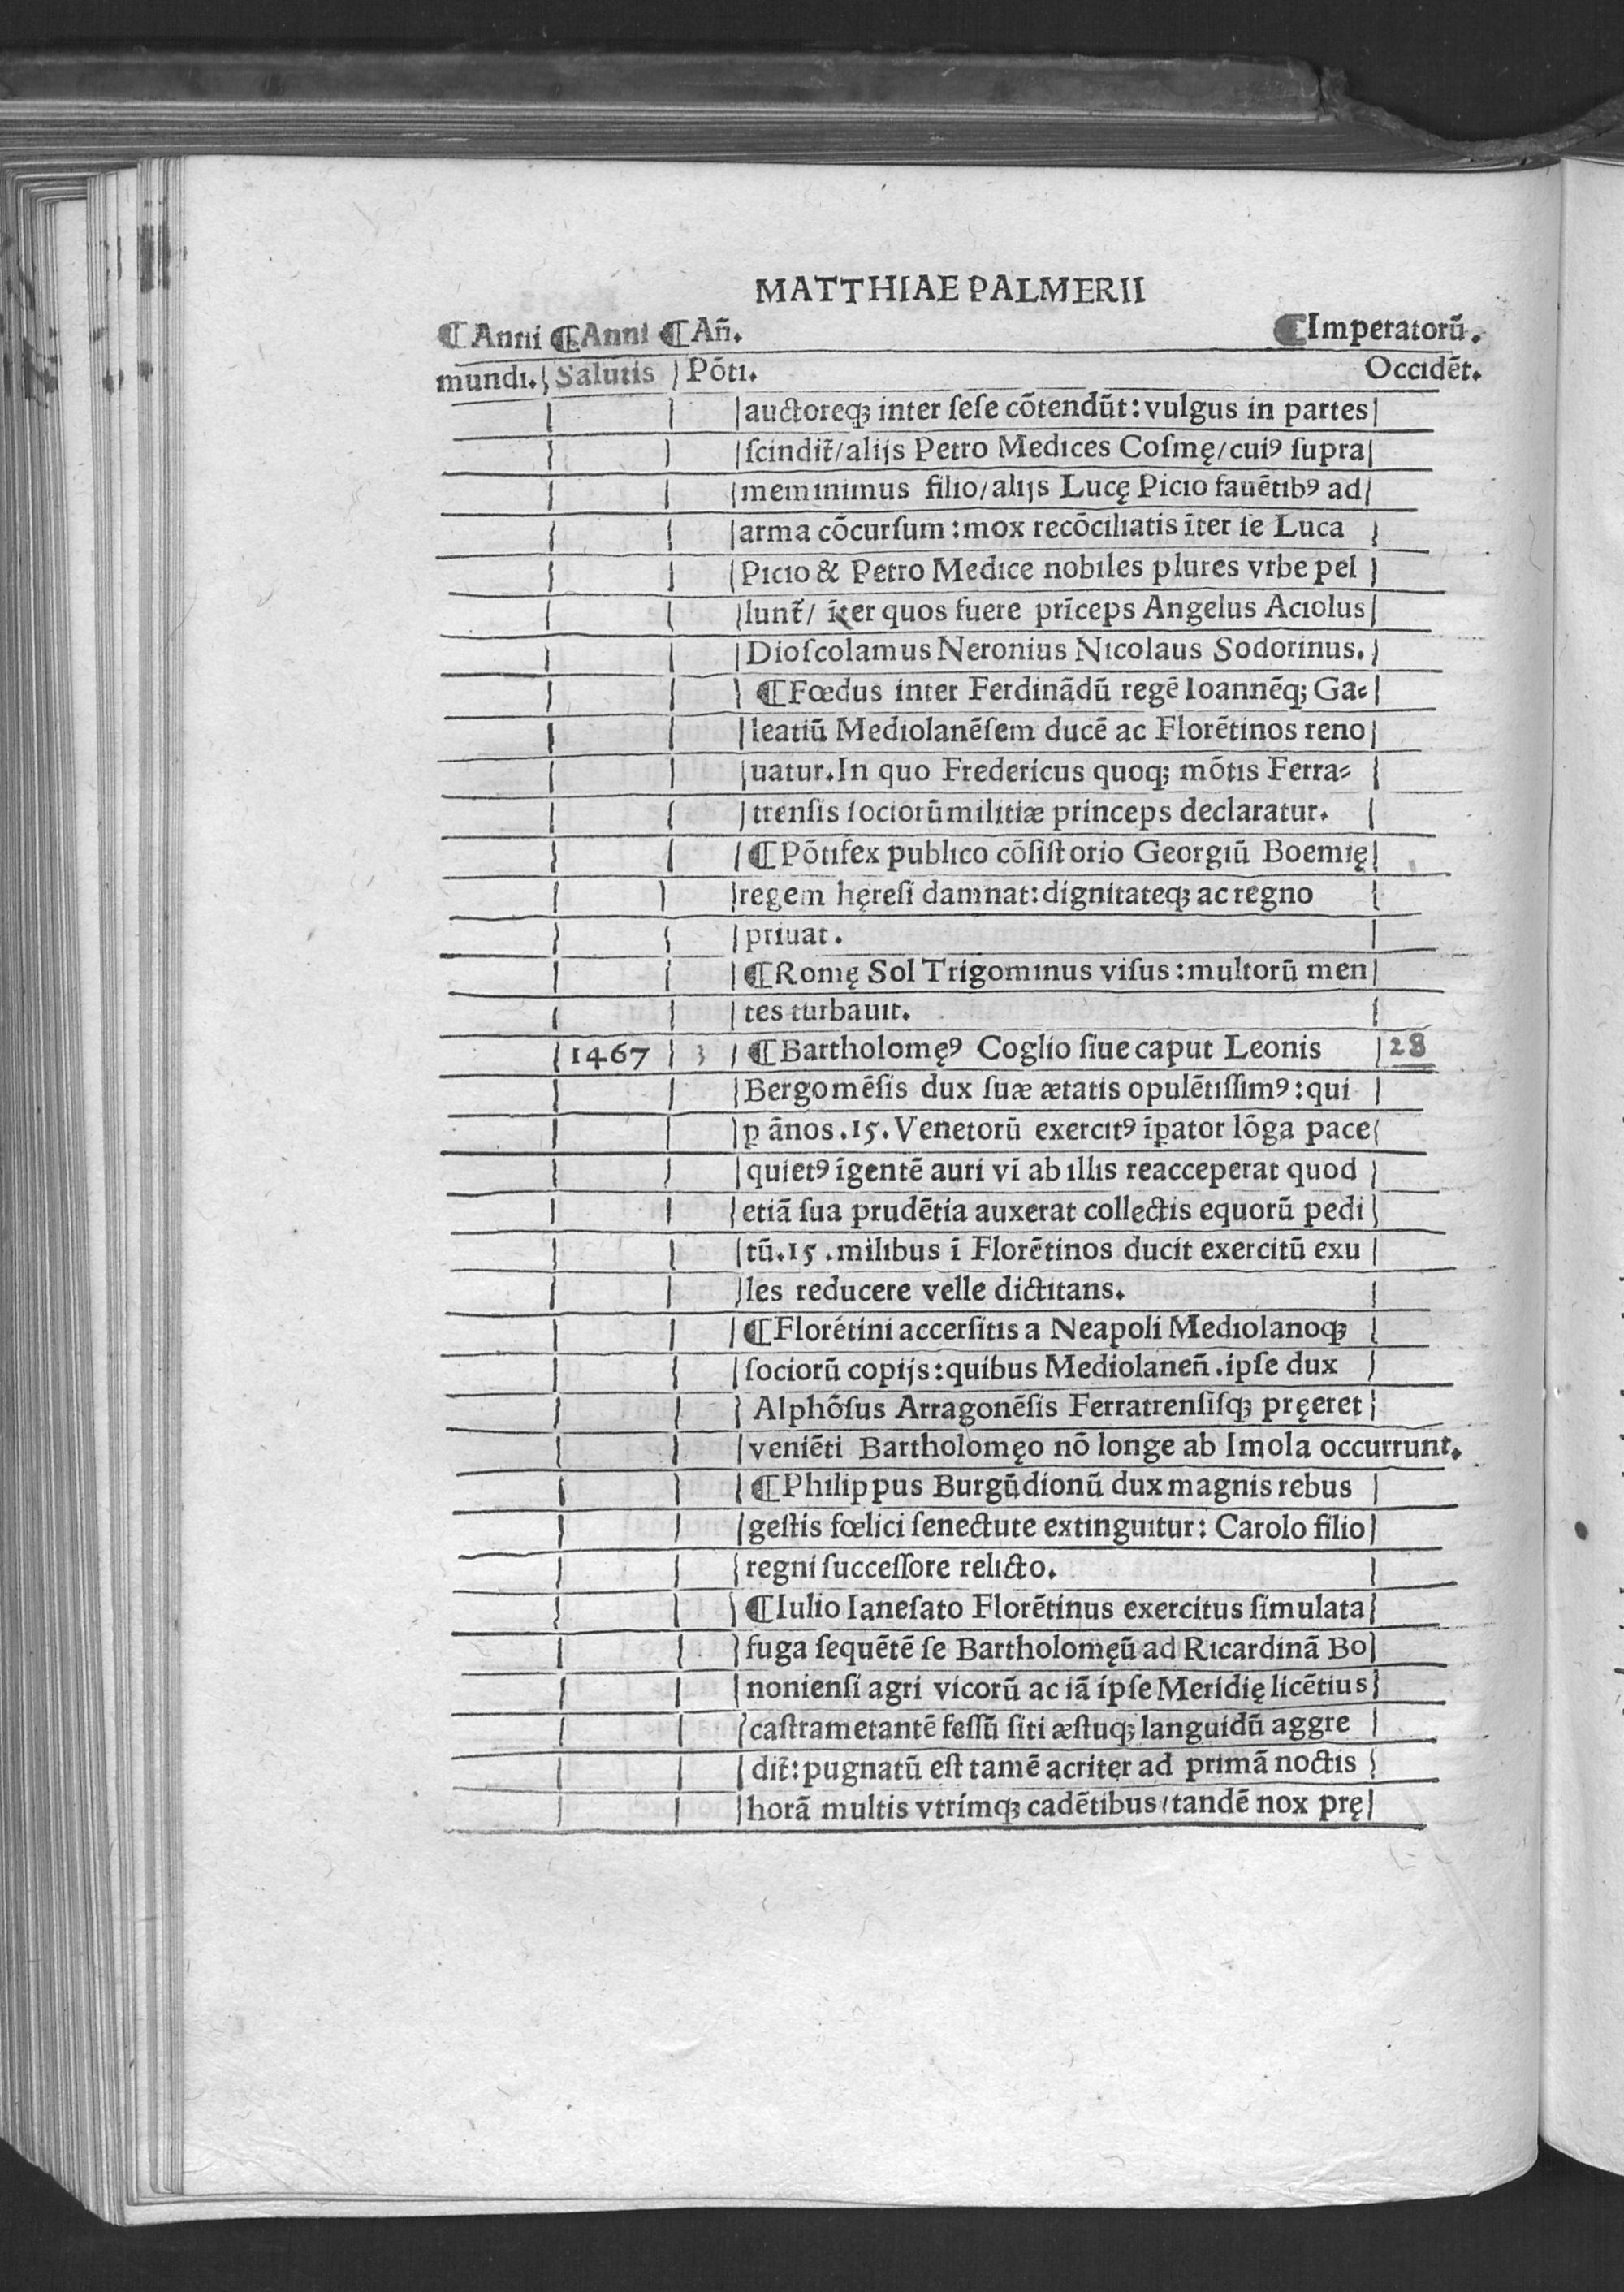 MATTHIAE PALMERII
¶ Anni ¶ Anni ¶ Añ. ¶Imperatorũ.
mundi. Salutis Põti. Occidẽt.
auctoreqꝫ inter ſeſe cõtendũt: vulgus in partes
ſcindit̃/alijs Petro Medices Coſmę/cuiꝰ ſupra
meminimus filio/alijs Lucę Picio fauẽtibꝰ ad
arma cõcurſum: mox recõciliatis ĩter ſe Luca
Picio & Petro Medice nobiles plures vrbe pel
lunt̃/ ĩter quos fuere prĩceps Angelus Aciolus
Dioſcolamus Neronius Nicolaus Sodorinus.
¶Fœdus inter Ferdinãdũ regẽ Ioannẽqꝫ Ga⸗
leatiũ Mediolanẽſem ducẽ ac Florẽtinos reno
uatur. In quo Fredericus quoqꝫ mõtis Ferra⸗
trenſis ſociorũ militiæ princeps declaratur.
¶Põtifex publico cõſiſtorio Georgiũ Boemię
regem hęreſi damnat: dignitateqꝫ ac regno
priuat.
¶Romę Sol Trigominus viſus: multorũ men
tes turbauit.
1467 3 ¶Bartholomęꝰ Coglio ſiue caput Leonis 28
Bergomẽſis dux ſuæ ætatis opulẽtiſſimꝰ: qui
ꝑ ãnos .15. Venetorũ exercitꝰ ĩꝑator lõga pace
quietꝰ ĩgentẽ auri vĩ ab illis reacceperat quod
etiã ſua prudẽtia auxerat collectis equorũ pedi
tũ .15. milibus ĩ Florẽtinos ducit exercitũ exu
les reducere velle dictitans.
¶Florẽtini accerſitis a Neapoli Mediolanoqꝫ
ſociorũ copijs: quibus Mediolaneñ. ipſe dux
Alphõſus Arragonẽſis Ferratrenſiſqꝫ pręeret
veniẽti Bartholomęo nõ longe ab Imola occurrunt.
¶Philippus Burgũdionũ dux magnis rebus
geſtis fœlici ſenectute extinguitur: Carolo filio
regni ſucceſſore relicto.
¶Iulio Ianeſato Florẽtinus exercitus ſimulata
fuga ſequẽtẽ ſe Bartholomęũ ad Ricardinã Bo
nonienſi agri vicorũ ac iã ipſe Meridię licẽtius
caſtrametantẽ feſſũ ſiti æſtuqꝫ languidũ aggre
dit̃: pugnatũ eſt tamẽ acriter ad primã noctis
horã multis vtrimqꝫ cadẽtibus/tandẽ nox prę